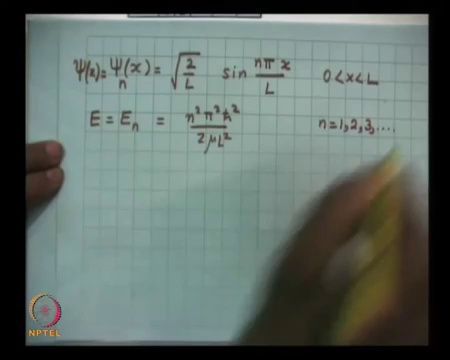 Ψ(x) = Ψn(x) = √(2/L) sin nπx/L 0 < x < L
E = En = n²π²ħ²/2μL² n = 1, 2, 3, ....
NPTEL